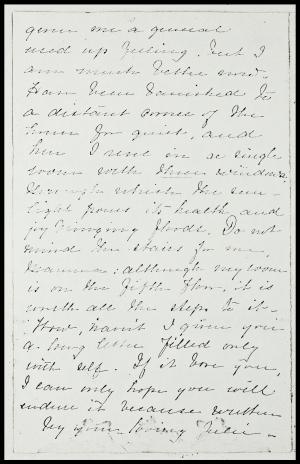 given me a general
used up feeling. But I
am much better now.
Have been banished to
a distant corner of the
house for quiet, and
here I rest in a single
room with three windows
through which the sun-
light pours its health and
joy bringing floods. Do not
mind the stairs for me,
Mamma: although my room
is on the fifth floor, it is
worth all the steps to it.
Now, haven't I given you
a long letter filled only
with self. If it bore you,
I can only hope you will
endure it because written
by your loving Julie.